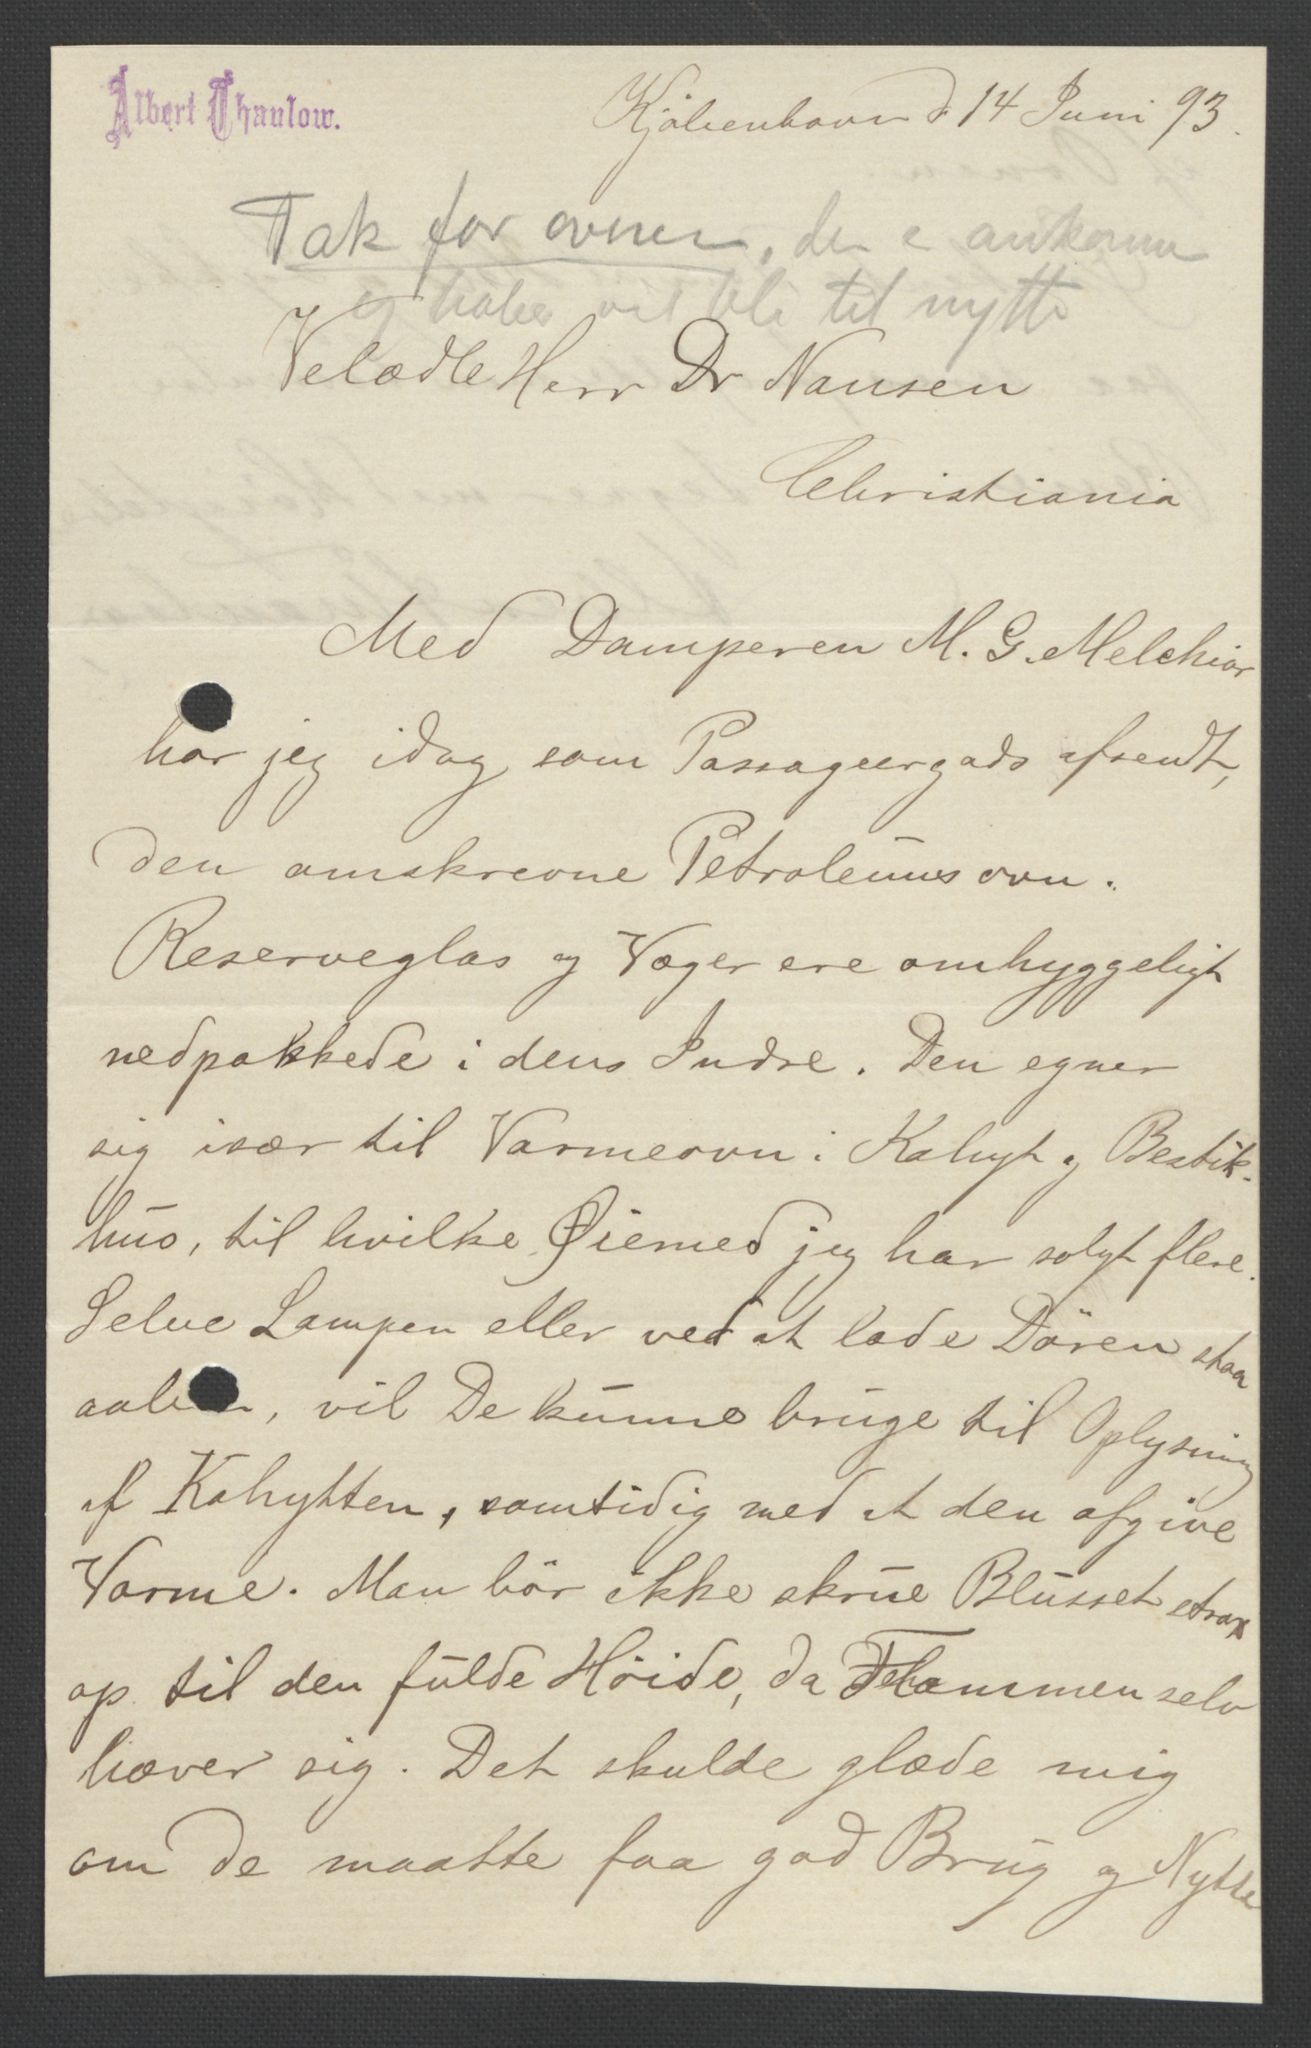 Albert Thaulow.
Kjöbenhavn d 14 Juni 93.
Tak for ovnen, den e ankommen
og haaber vil bli til nytte
Velædle Herr Dr Nansen
Christiania
Med Damperen M. G. Melchior
har jeg idag som Passageergods afsendt,
den omskrevne Petroleumsovn.
Reserveglas og Væger ere omhyggeligt
nedpakkede i dens Indre. Den egner
sig især til Varmeovn i Kahyt og Bestik-
hus, til hvilke Øiemed jeg har solgt flere.
Selve Lampen eller ved at lade Dören staa
aaben, vil De kunne bruge til Oplysning
af Kahytten, samtidig med at den afgive
Varme. Man bör ikke skrue Blusset strax
op til den fulde Höide, da Flammen selv
hæver sig. Det skulde glæde mig
om De maatte faa god Brug og Nytte